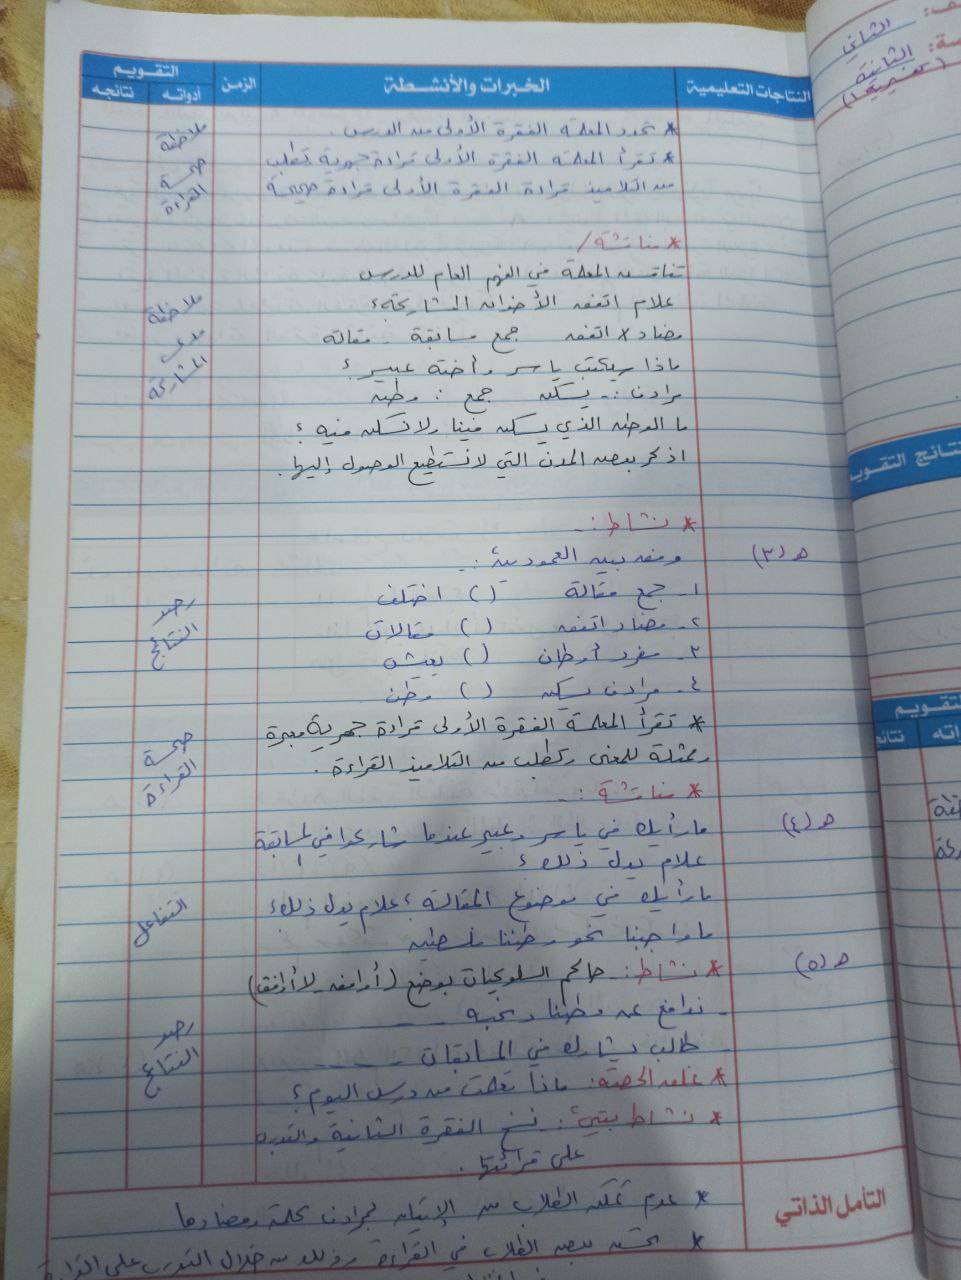 الثاني
الثانية
النتاجات التعليمية
الخبرات والأنشطة
الزمن
التقويم
أدواته
نتائجه
* تحدد المعلمة الفقرة الأولى من الدرس.
ملاحظة
* تقرأ المعلمة الفقرة الأولى قراءة جهرية تطلب
صحة
من التلاميذ قراءة الفقرة الأولى قراءة صحيحة
القراءة
* مناقشة /
تناقش المعلمة في الفهم العام للدرس
علام اتفق الأخوان المشاركة؟
ملاحظة
مضاد × اتفق جمع مسابقة - مقالة
مدى
ماذا سيكتب ياسر وأخته عبير؟
المشاركة
مرادف :- يسكن جمع :- وطن
ما الوطن الذي يسكن فينا ولا نسكن فيه؟
اذكر بعض المدن التي لا نستطيع الوصول إليها.
* نشاط :-
هـ (٣)
وفق بين العمودين :-
١- جمع مقالة ( ) اختلف
رصد
٢- مضاد اتفق ( ) مقالات
النتائج
٣- مفرد أوطان ( ) يعيش
٤- مرادف يسكن ( ) وطن
* تقرأ المعلمة الفقرة الأولى قراءة جهرية معبرة
صحة
وممثلة للمعنى وتطلب من التلاميذ القراءة.
القراءة
* مناقشة :-
هـ (٤)
ما رأيك في ياسر وعبير عندما شاركوا في المسابقة
علام يدل ذلك؟
ما رأيك في موضوع المقالة؟ علام يدل ذلك؟
التفاعل
ما واجبنا نحو وطننا فلسطين
هـ (٥)
* نشاط :- حاكم السلوكيات بوضع (أوافق - لا أوافق)
- ندافع عن وطننا ونحبه
رصد
- طالب يشارك في المسابقات
النتائج
* غلق الحصة: ماذا تعلمت من درس اليوم؟
* نشاط بيتي :- نسخ الفقرة الثانية والتدرب
على قرائتها.
التأمل الذاتي
* عدم تمكن الطلاب من الإتيان بمرادف كلمة ومضادها
* تحسن بعض الطلاب في القراءة وذلك من خلال التدرب على
نتائج التقويم
التقويم